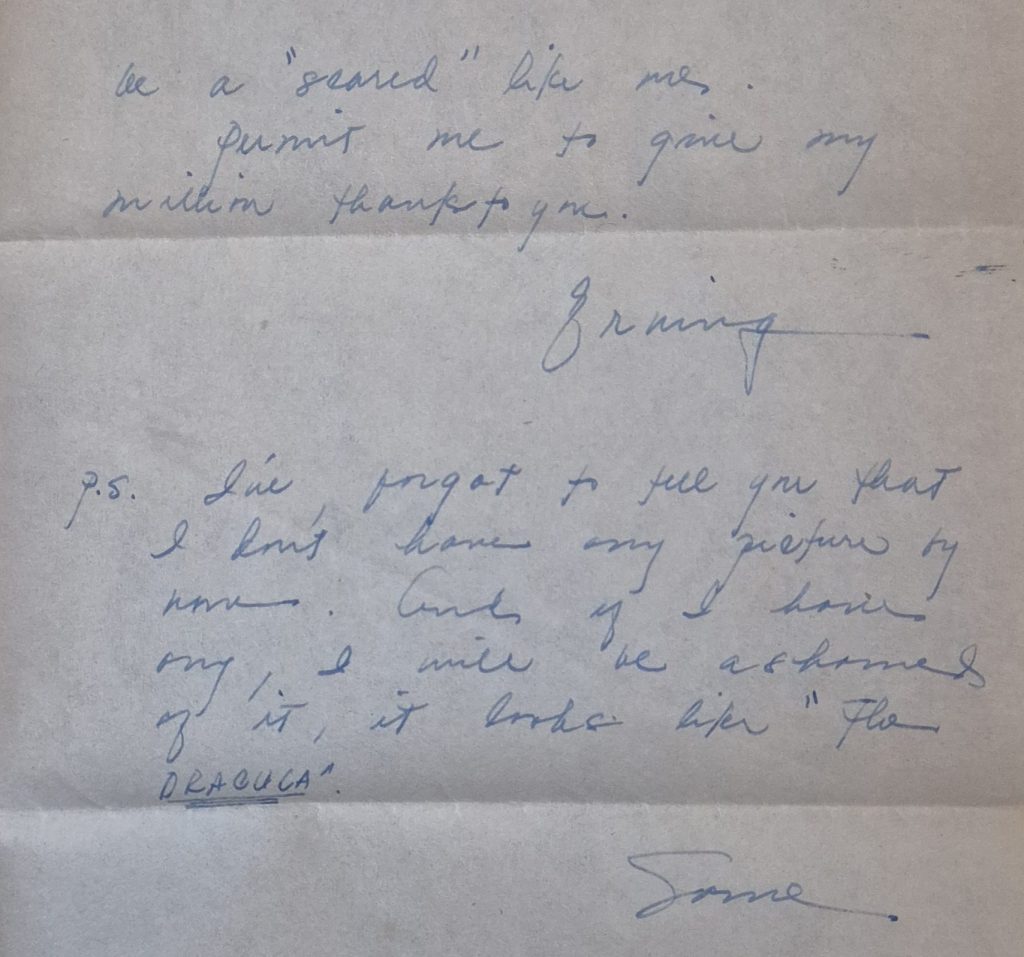 be a "scared" like me.
Permit me to give my
million thanks to you.
Erning
P.S. I've forgot to tell you that
I don't have any picture by
now. And if I have
any, I will be ashamed
of it, it looks like "The
DRACULA".
Same